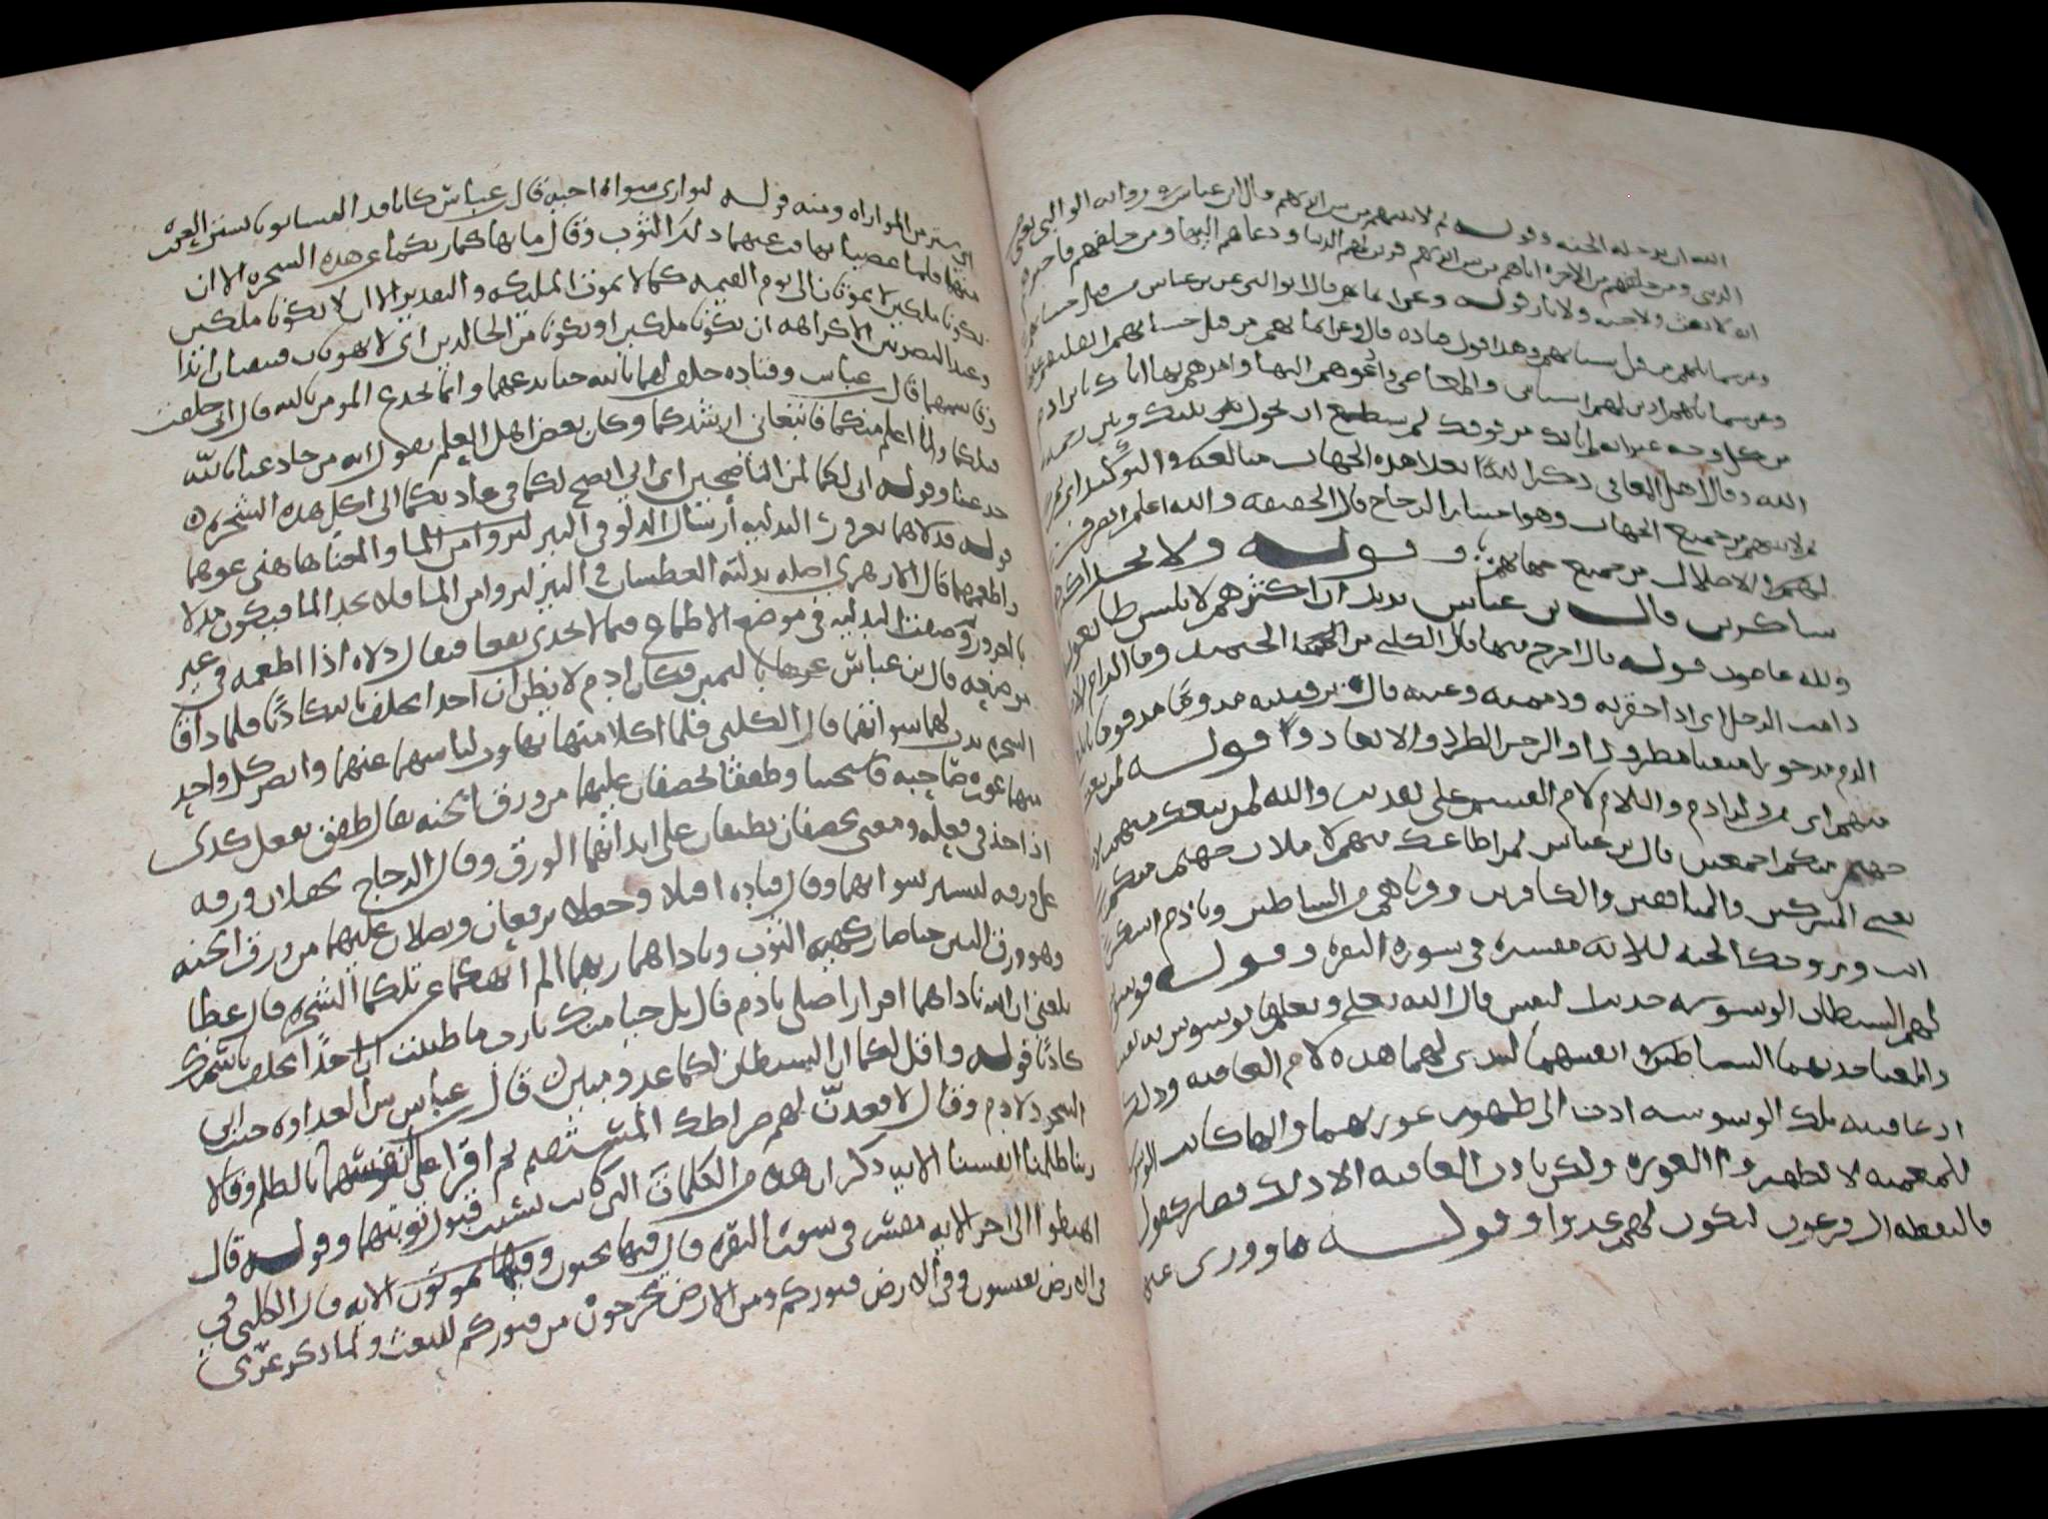 الله ان يدخله الجنه وقوله ثم لاتينهم من بين ايديهم قال ابن عباس في روايه الوالبي يعني
الدنيا ومن خلفهم من الاخره اتاهم من بين ايديهم فزين لهم الدنيا ودعاهم اليها ومن خلفهم فاخبرهم
انه لا بعث ولا جنه ولا نار وقوله وعن ايمانهم قال الوالبي عن بن عباس من قبل حسناتهم
وعن شمايلهم من قبل سياتهم وهذا قول قتاده قال وعن ايمانهم من قبل حسناتهم
وعن شمايلهم ازين لهم السيات والمعاصي وادعوهم اليها وامرهم بها اتاك يا بن ادم
من كل وجه غير انه لم ياتك من فوقك لم يستطع ان يحول بينك وبين رحمه
الله وقال اهل المعاني ذكر الله تعلا هذه الجهات مبالغه في التوكيد اي
لاتينهم من جميع الجهات وهو اختيار الزجاج قال الحقيقه والله اعلم اتصرف
لهم في الاضلال من جميع جهاتهم وقوله ولا تجد اكثرهم
شاكرين قال بن عباس يريد ان اكثرهم لابليس طايعون
ولله عاصون قوله قال اخرج منها قال الكلبي من الجنه
دامت الرجل اي اذا احقرته وذممته وعبته قال بن قتيبه مدوما مذموما
الذم مدحورا مبعدا مطرودا والدحر الطرد والابعاد وقوله لمن تبعك
منهم اي من اولاد ادم واللام لام القسم على تقدير والله لمن تبعك منهم
جهنم منكم اجمعين قال بن عباس لمن اطاعك منهم لاملان جهنم منكم
يعني المشركين والمنافقين والكافرين وقرناهم من الشياطين ويا ادم اسكن
انت وزوجك الجنه الايه مفسره في سورة البقره وقوله فوسوس
لهم الشيطان الوسوسه حديث النفس قال الله تعلى ونعلم ما توسوس به نفسه
والمعنا حدثهما الشيطان في انفسهما ليبدي لهما هذه لام العاقبه وذلك
ان عاقبه تلك الوسوسه ادت الى ظهور عورتهما وانما كانت
للمعصيه لا لظهور العوره ولكن كانت العاقبه الا ذلك فصار كقوله
فالتقطه ال فرعون ليكون لهم عدوا وقوله ما ووري عنهما
اي ستر من المواراه ومنه قوله ليواري سواة اخيه قال عباس كانا قد البسا ثوبا يستر العوره
منهما فلما عصيا تهافت عنهما ذلك الثوب وقال ما نهاكما ربكما عن هذه الشجره الا ان
تكونا ملكين لا تموتان الى يوم القيمه كما لا تموت الملايكه والتقدير الا ان لا تكونا ملكين
وعند البصريين الا كراهه ان تكونا ملكين او تكونا من الخالدين اي لا تموتان فتبقيان ابدا
وقاسمهما قال عباس وقتاده حلف لهما بالله حتا خدعهما وانما يخدع المومن بالله قال اني خلقت
قبلكما وانا اعلم منكما فاتبعاني ارشدكما وكان بعض اهل العلم يقول انه من خادعنا بالله
خدعنا وقوله اني لكما لمن الناصحين اي اني انصح لكما في دعايكما الى اكل هذه الشجره
قوله فدلاهما بغرور التدليه ارسال الدلو في البير ليروا من الما والمعنا هاهني غرهما
واطعمهما قال الازهري اصله تدليه العطشان في البير ليروا من الما فلا يجد الما فيكون مدلا
بالغرور وضعت التدليه في موضع الاطماع فيما لا يجدي نفعا فيقال دلاه اذا اطمعه في غير
مرضيه قال بن عباس غرهما باليمين وكان ادم لا يظن ان احدا يحلف بالله كاذبا فلما ذاقا
الشجره بدت لهما سواتهما قال الكلبي فلما اكلا منها تهافت لباسهما عنهما وابصر كل واحد
منهما عوره صاحبه فاستحيا وطفقا يخصفان عليهما من ورق الجنه يقال طفق يفعل كذى
اذا اخذ في فعله ومعنى يخصفان يطبقان على ابدانهما الورق وقال الزجاج يجعلان ورقه
على ورقه ليستر سواتهما وقال قتاده اقبلا وجعلا يرقعان ويصلان عليهما من ورق الجنه
وهو ورق التين حتا صار كهييه الثوب وناداهما ربهما الم انهكما عن تلكما الشجره قال عطا
بلغني ان الله ناداهما افرارا مني يادم قال بل حيا منك يا رب ما ظننت ان احدا يحلف باسمك
كاذبا قوله واقل لكما ان الشيطان لكما عدو مبين قال عباس بين العداوه حيث ابى
السجود لادم وقال لاقعدن لهم صراطك المستقيم ثم اقرا على انفسهما بالظلم وقالا
ربنا ظلمنا انفسنا الايه ذكر ان هذه من الكلمات التي كانت سبب قبول توبتهما وقوله قال
اهبطوا الى اخر الايه مفسر في سورة البقره قال فيها تحيون وفيها تموتون الايه قال الكلبي في
في الارض تعيشون وفي الارض قبوركم ومن الارض تخرجون من قبوركم للبعث ولما ذكر عري